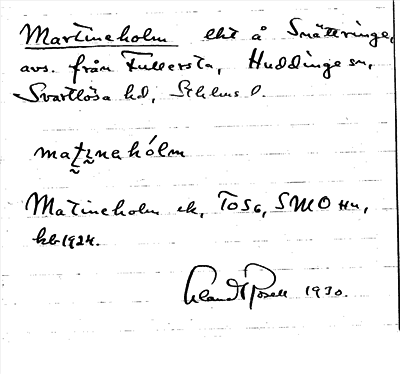 Martineholm lht å Snättringe,
avs. från Fullersta, Huddinge sn,
Svartlösa hd, Sthlms l.
matinehólm
Matineholm ek, TOSG, SMO Hu,
kb 1924.
Erland Rosell 1930.